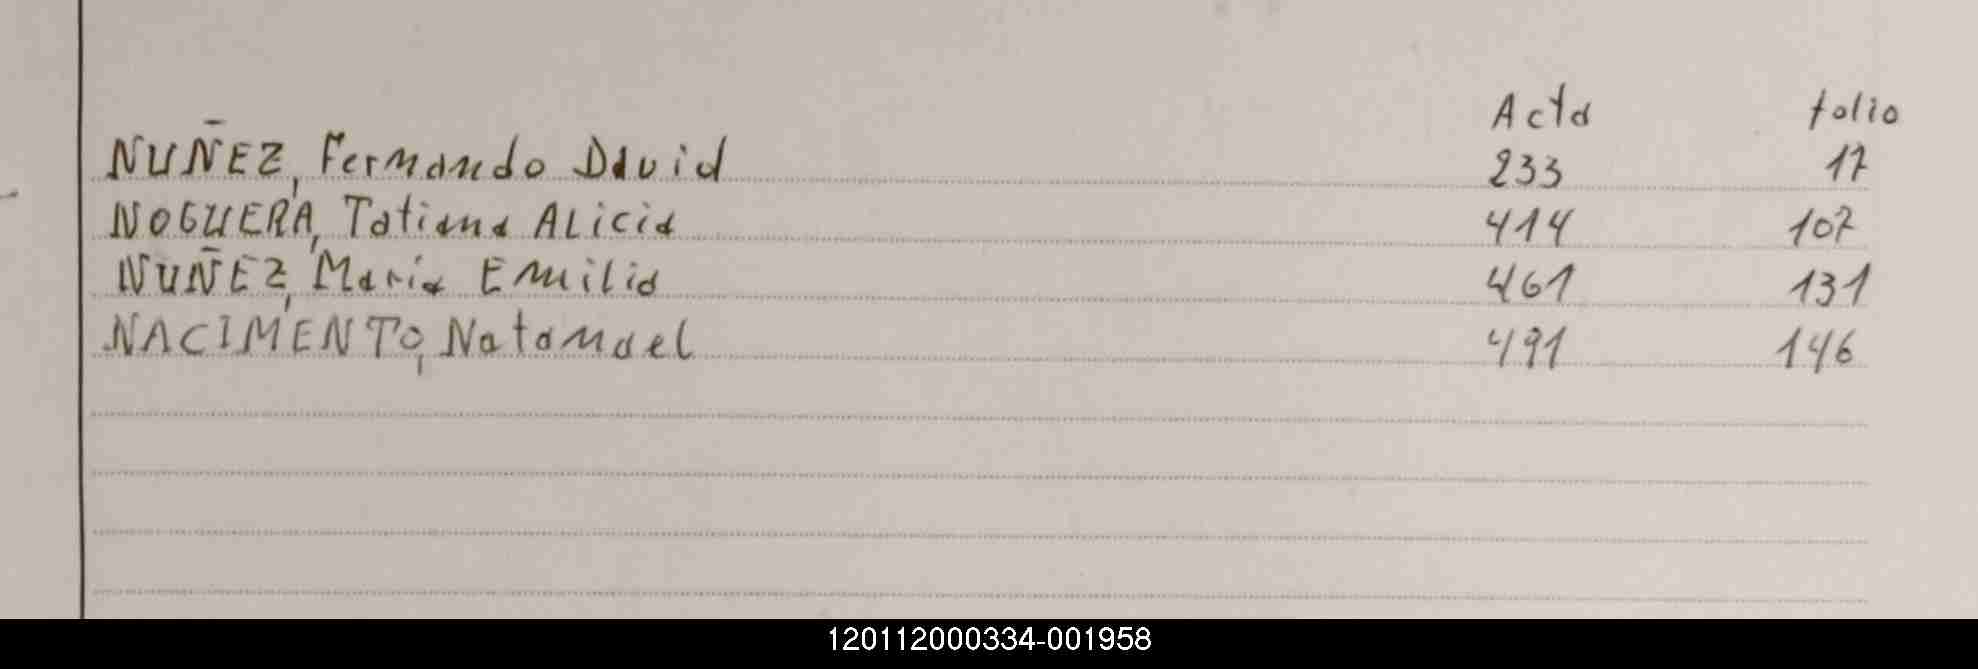 Acta folio
NUÑEZ, Fernando David 233 17
NOGUERA, Tatiana Alicia 414 107
NUÑEZ, Maria Emilia 461 131
NACIMENTO, Natanael 491 146
120112000334-001958